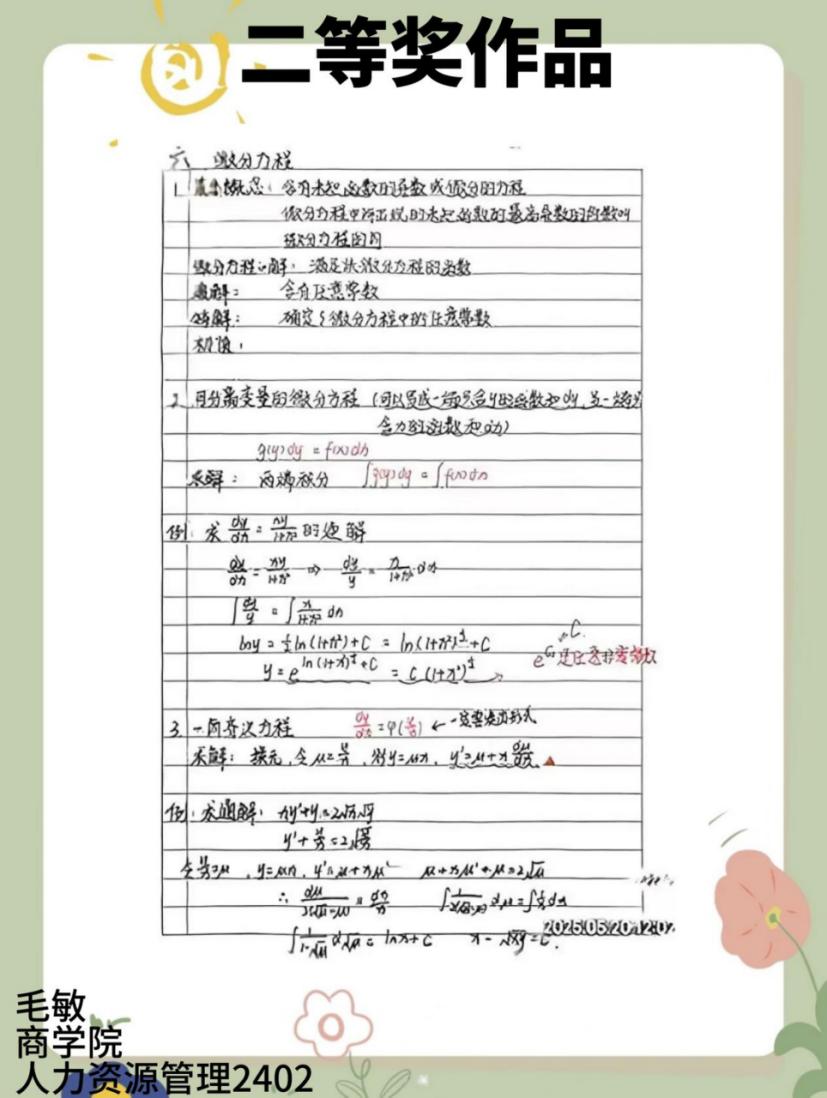 二等奖作品
六 微分方程
1. 基本概念：含有未知函数的导数或微分的方程
微分方程中所出现的未知函数的最高阶数的阶数叫
微分方程的阶
微分方程的解：满足微分方程的函数
通解：含有任意常数
特解：确定了微分方程中的任意常数
初值：
2. 可分离变量的微分方程（可以写成一端只含y的函数和dy，另一端只
含x的函数和dx）
g(y)dy = f(x)dx
求解：两端积分 ∫g(y)dy = ∫f(x)dx
例：求 dy/dx = xy/1+x² 的通解
dy/dx = xy/1+x² ⇒ dy/y = x/1+x² dx
∫dy/y = ∫x/1+x² dx
lny = ½ln(1+x²)+C = ln(1+x²)^½+C
y = e^ln(1+x²)^½+C = C(1+x²)^½
C
e^C₁是任意非零常数
3. 一阶齐次方程 dy/dx = φ(y/x) ←一定要换成形式
求解：换元，令 μ=y/x，则y=μx，y'=μ+x dμ/dx
例：求通解：xy'+y=2√x√y
y'+y/x=2√y/x
令y/x=μ，y=μx，y'=μ+xμ' μ+xμ'+μ=2√μ
∴ dμ/2(√μ-μ) = dx/x ∫1/2(√μ-μ) dμ=∫1/x dx
∫1/1-√μ d√μ = lnx+C x-√xy=C.
2025.05.20 12:07
毛敏
商学院
人力资源管理2402